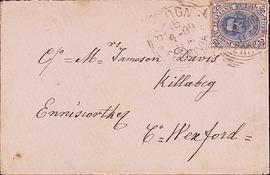 BOLOGNA
C/o Mrs Jameson Davis
Killabeg
Enniscorthy
Co Wexford